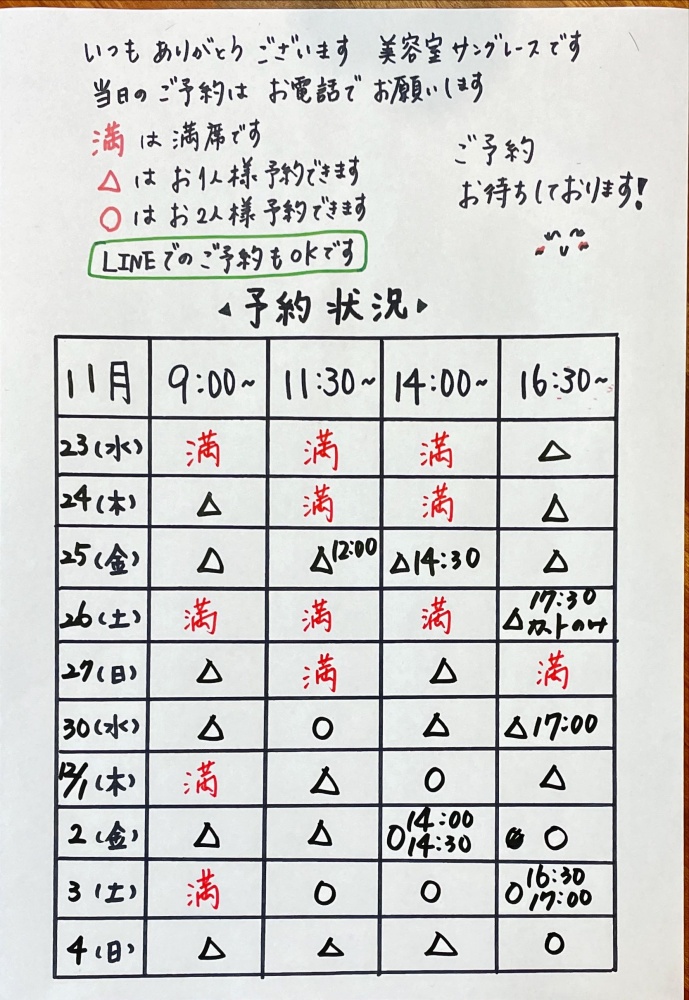 いつも ありがとう ございます 美容室 サングレースです
当日の ご予約は お電話で お願いします
満 は 満席です
△ は お1人様 予約できます
○ は お2人様 予約できます
LINEでの ご予約も OKです
ご予約
お待ちしております!
◂ 予約 状況 ▸
11月 9:00~ 11:30~ 14:00~ 16:30~
23(水) 満 満 満 △
24(木) △ 満 満 △
25(金) △ △12:00 △14:30 △
26(土) 満 満 満 △17:30 カットのみ
27(日) △ 満 △ 満
30(水) △ ○ △ △17:00
12/1(木) 満 △ ○ △
2(金) △ △ ○14:00 14:30 ○
3(土) 満 ○ ○ ○16:30 17:00
4(日) △ △ △ ○